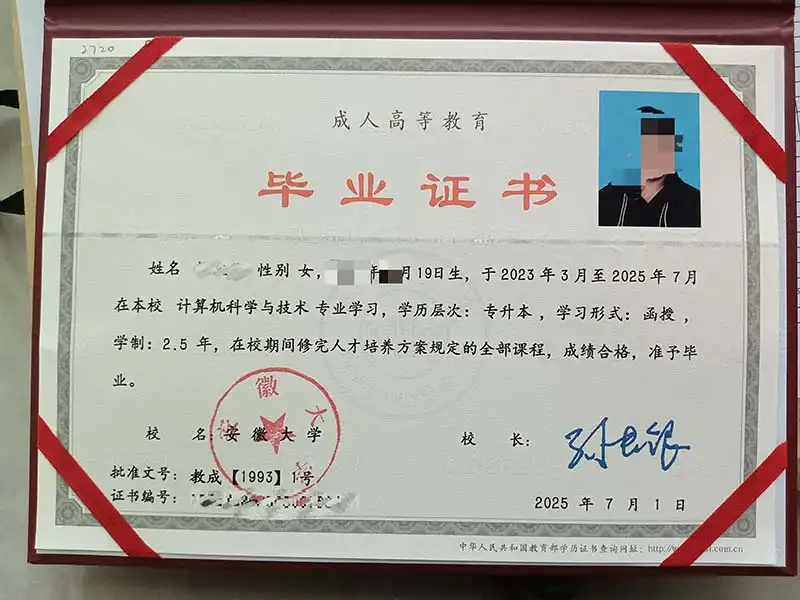 2720
成人高等教育
毕业证书
姓名 性别 女， 年 月19日生，于2023年3月至2025年7月
在本校 计算机科学与技术 专业学习，学历层次：专升本，学习形式：函授，
学制：2.5 年，在校期间修完人才培养方案规定的全部课程，成绩合格，准予毕
业。
校 名：安徽大学
校 长：
批准文号：教成【1993】1号
证书编号：
2025 年 7 月 1 日
中华人民共和国教育部学历证书查询网址：http://w .com.cn